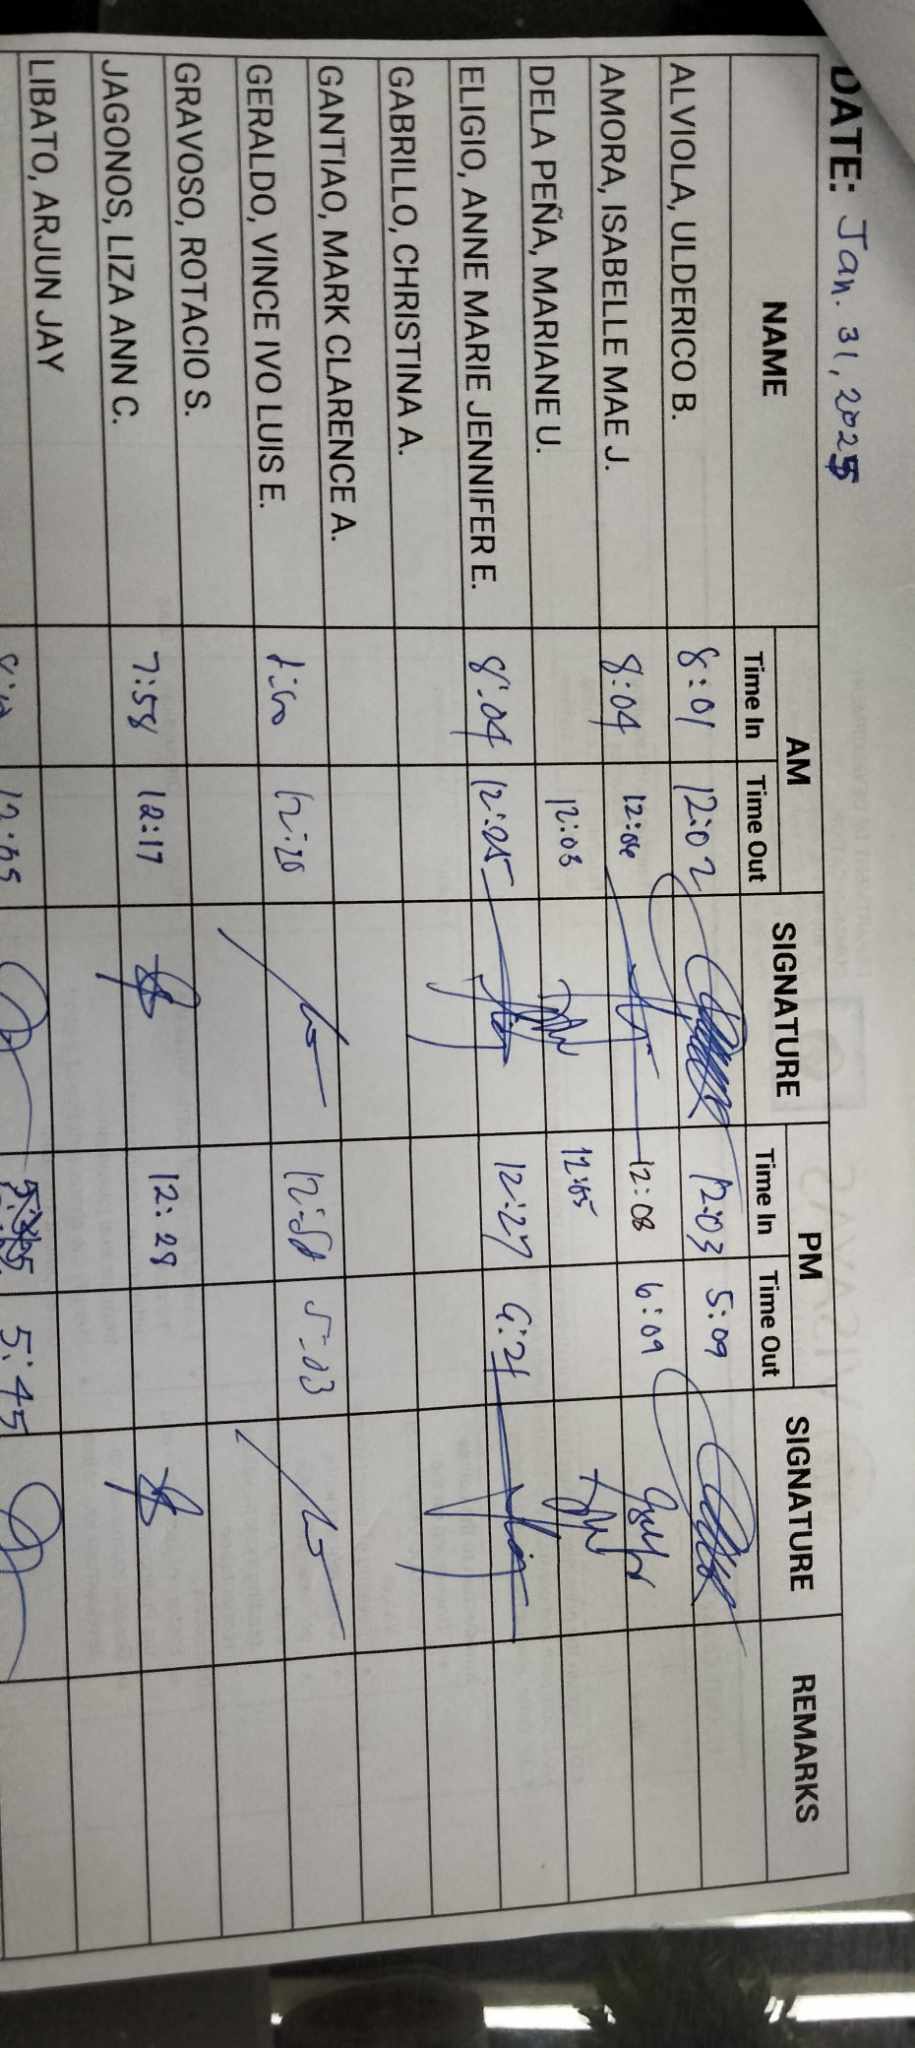 DATE: Jan. 31, 2025
NAME AM SIGNATURE PM SIGNATURE REMARKS
Time In Time Out Time In Time Out
ALVIOLA, ULDERICO B. 8:01 12:02 12:03 5:09
AMORA, ISABELLE MAE J. 8:04 12:06 12:08 6:09
DELA PEÑA, MARIANE U. 12:03
ELIGIO, ANNE MARIE JENNIFER E. 8:04 12:25 12:27 6:21
GABRILLO, CHRISTINA A.
GANTIAO, MARK CLARENCE A.
GERALDO, VINCE IVO LUIS E. 12:20 12:58 5:03
GRAVOSO, ROTACIO S.
JAGONOS, LIZA ANN C. 7:58 12:17 12:28
LIBATO, ARJUN JAY
5:45